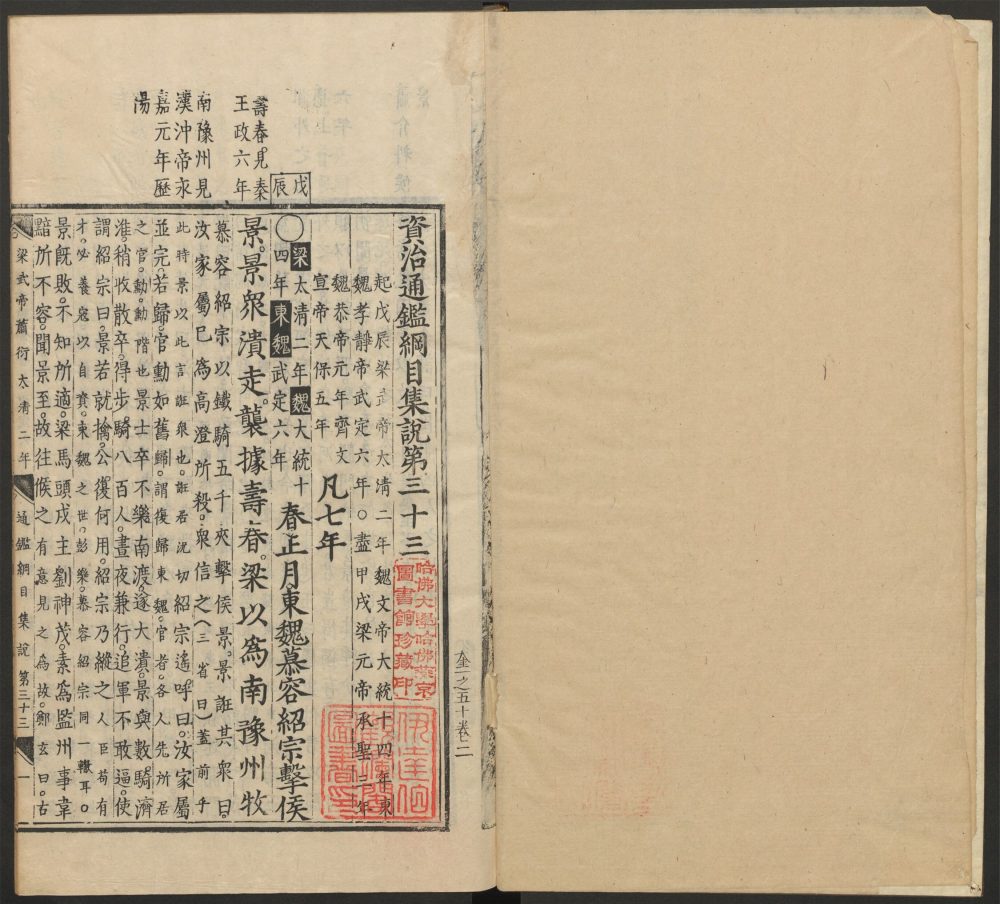 資治通鑑綱目集說第三十三
起戊辰梁武帝太清二年魏文帝大統十四年東
魏孝靜帝武定六年○盡甲戌梁元帝承聖三年
魏恭帝元年齊文
宣帝天保五年
凡七年
戊辰
○梁太清二年魏大統十
四年東魏武定六年
春正月東魏慕容紹宗擊侯
景景衆潰走襲據壽春梁以爲南豫州牧
慕容紹宗以鐵騎五千夾擊侯景景誑其衆曰
汝家屬已爲高澄所殺衆信之(三省曰)蓋前乎
此時景以此言誑衆也誑居況切紹宗遙呼曰汝家屬
並完若歸官勳如舊歸謂復歸東魏官者各人先所居
之官勳勳階也景士卒不樂南渡遂大潰景與數騎濟
淮稍收散卒得步騎八百人晝夜兼行追軍不敢逼使
謂紹宗曰景若就擒公復何用紹宗乃縱之人臣苟有
才必養寇以自資東魏之世彭樂慕容紹宗同一轍耳○
景既敗不知所適梁馬頭戍主劉神茂素爲監州事韋
黯所不容聞景至故往候之有意見之爲故鄭玄曰古
壽春見秦
王政六年
南豫州見
漢沖帝永
嘉元年歷
湯
梁武帝蕭衍太清二年
通鑑綱目集說第三十三
一
哈佛大學哈佛燕京
圖書館珍藏印